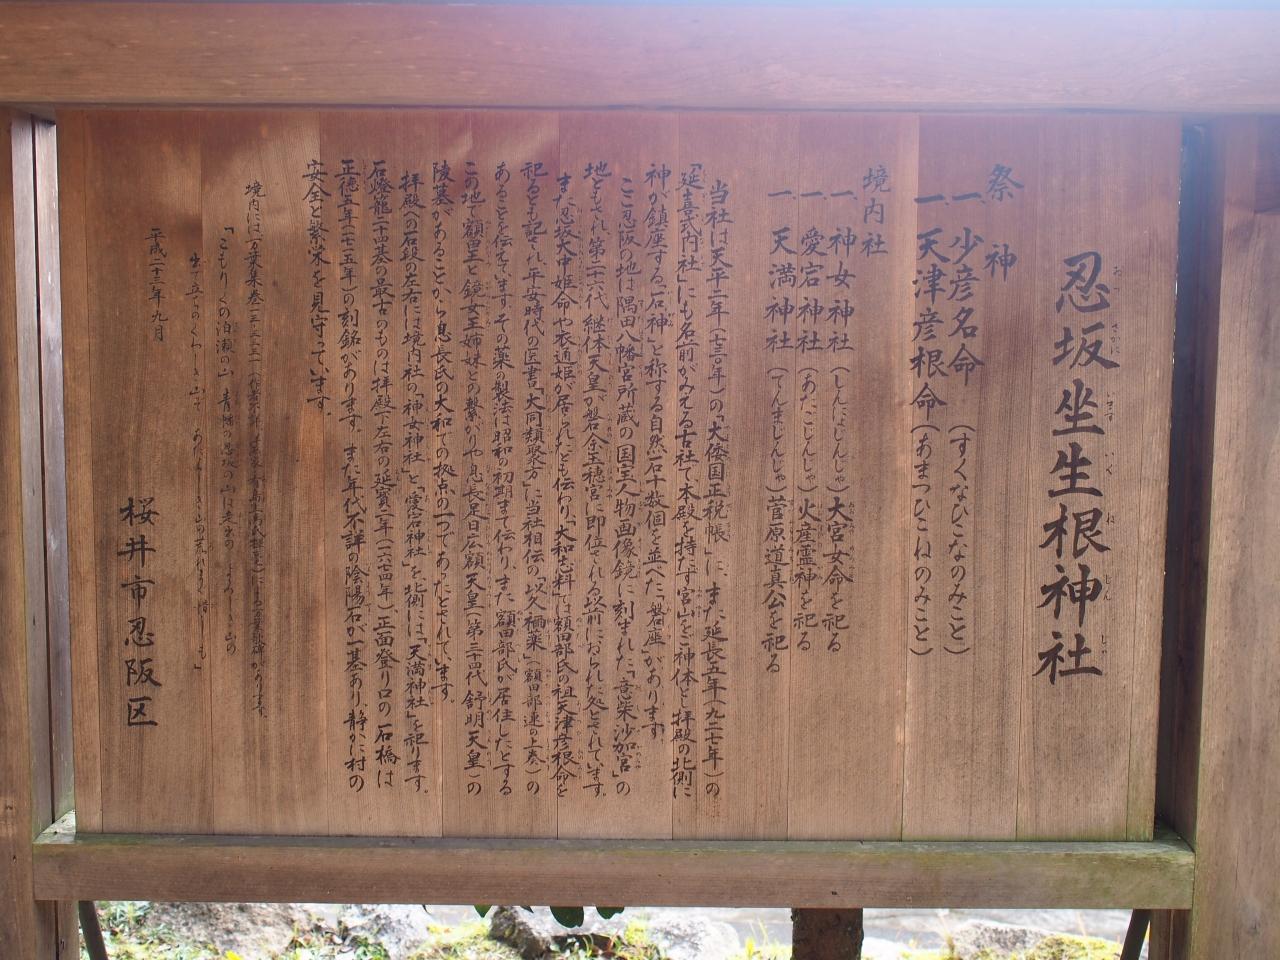 忍坂坐生根神社
おさかにいますいくねじんじゃ
祭神
一、少彦名命（すくなひこなのみこと）
一、天津彦根命（あまつひこねのみこと）
境内社
一、神女神社（しんにょじんじゃ）大宮女命を祀る
一、愛宕神社（あたごじんじゃ）火産霊神を祀る
一、天満神社（てんまじんじゃ）菅原道真公を祀る
当社は天平二年（七三〇年）の「大倭国正税帳」に、また、延長五年（九二七年）の
「延喜式内社」にも名前がみえる古社で本殿を持たず宮山をご神体とし拝殿の北側に
神が鎮座する「石神」と称する自然石十数個を並べた「磐座」があります。
ここ忍阪の地は隅田八幡宮所蔵の国宝人物画像鏡に刻まれた「意柴沙加宮」の
地ともされ、第二十六代 継体天皇が磐余玉穂宮に即位される以前におられた処とされています。
また忍坂大中姫命や衣通姫が居られたとも伝わり「大和志料」では額田部氏の祖天津彦根命を
祀るとも記され、平安時代の医書「大同類聚方」に当社相伝の「以久禰薬」（額田部連の上奏）の
あることを伝えています。その薬の製法は昭和の初期まで伝わり、また 額田部氏が居住したとする
この地で額田王と鏡女王姉妹との繋がりや息長足日広額天皇（第三十四代 舒明天皇）の
陵墓があることから息長氏の大和での拠点の一つであったとされています。
拝殿への石段の左右には境内社の「神女神社」と「愛宕神社」を、北側には「天満神社」を祀ります。
石燈籠二十四基の最古のものは拝殿下左右の延寳二年（一六七四年）、正面登り口の 石橋は
正徳五年（一七一五年）の刻銘があります。また年代不詳の陰陽石が一基あり、静かに村の
安全と繁栄を見守っています。
境内には万葉集巻一三‐三三三一（作者不詳 による万葉歌碑があります。
「こもりくの泊瀬の山 青幡の忍坂の山は走出の よろしき山の
出で立ちのくわしき山ぞ あたらしき山の荒れまく 惜しも」
平成二十二年九月
桜井市忍阪区